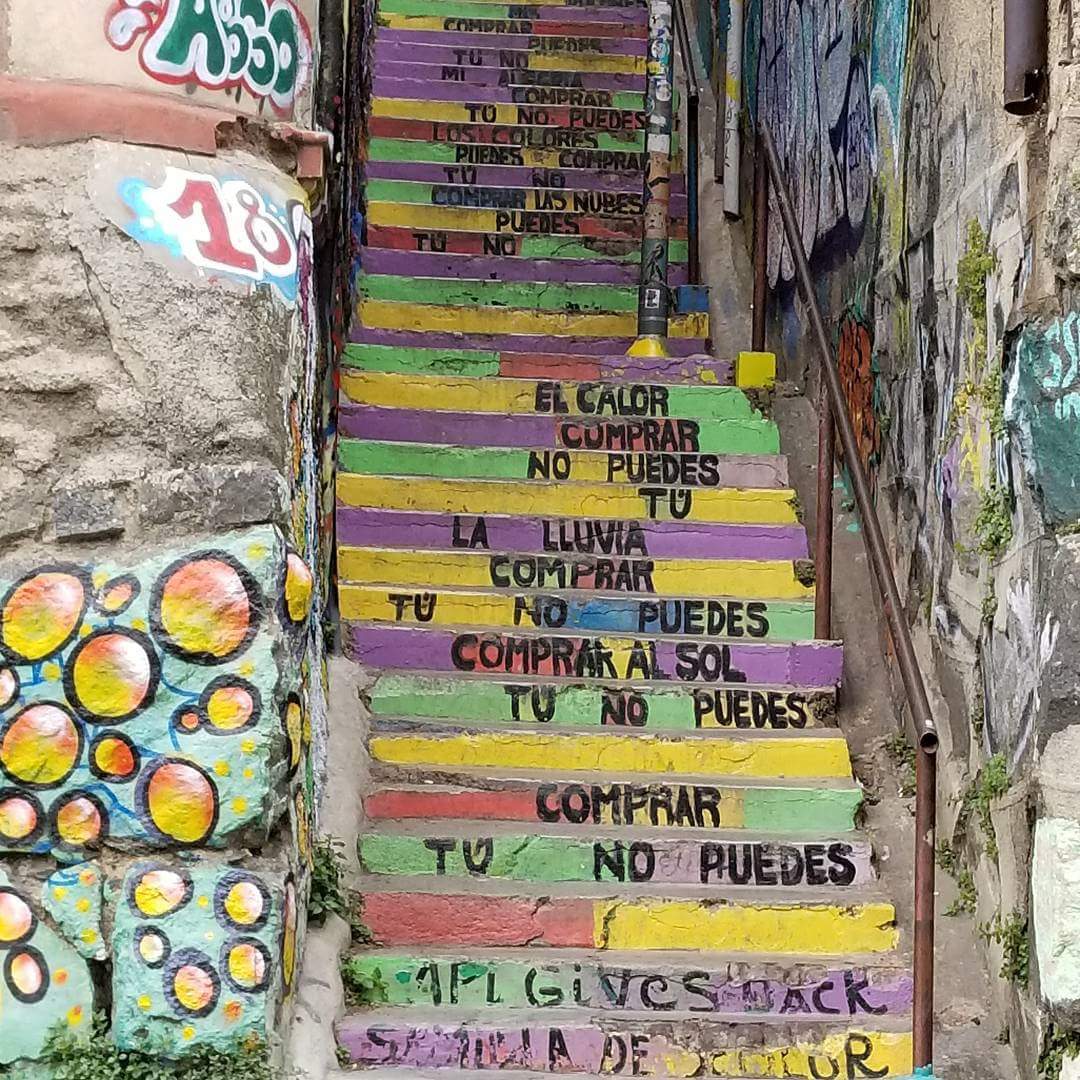 ASSO
18
COMPRAR
PUEDES
TU NO
MI ALEGRIA
COMPRAR
TU NO PUEDES
LOS COLORES
PUEDES COMPRAR
TU NO
COMPRAR LAS NUBES
PUEDES
TU NO
EL CALOR
COMPRAR
NO PUEDES
TÚ
LA LLUVIA
COMPRAR
TÚ NO PUEDES
COMPRAR AL SOL
TU NO PUEDES
COMPRAR
TÚ NO PUEDES
API GiVES BACK
DE